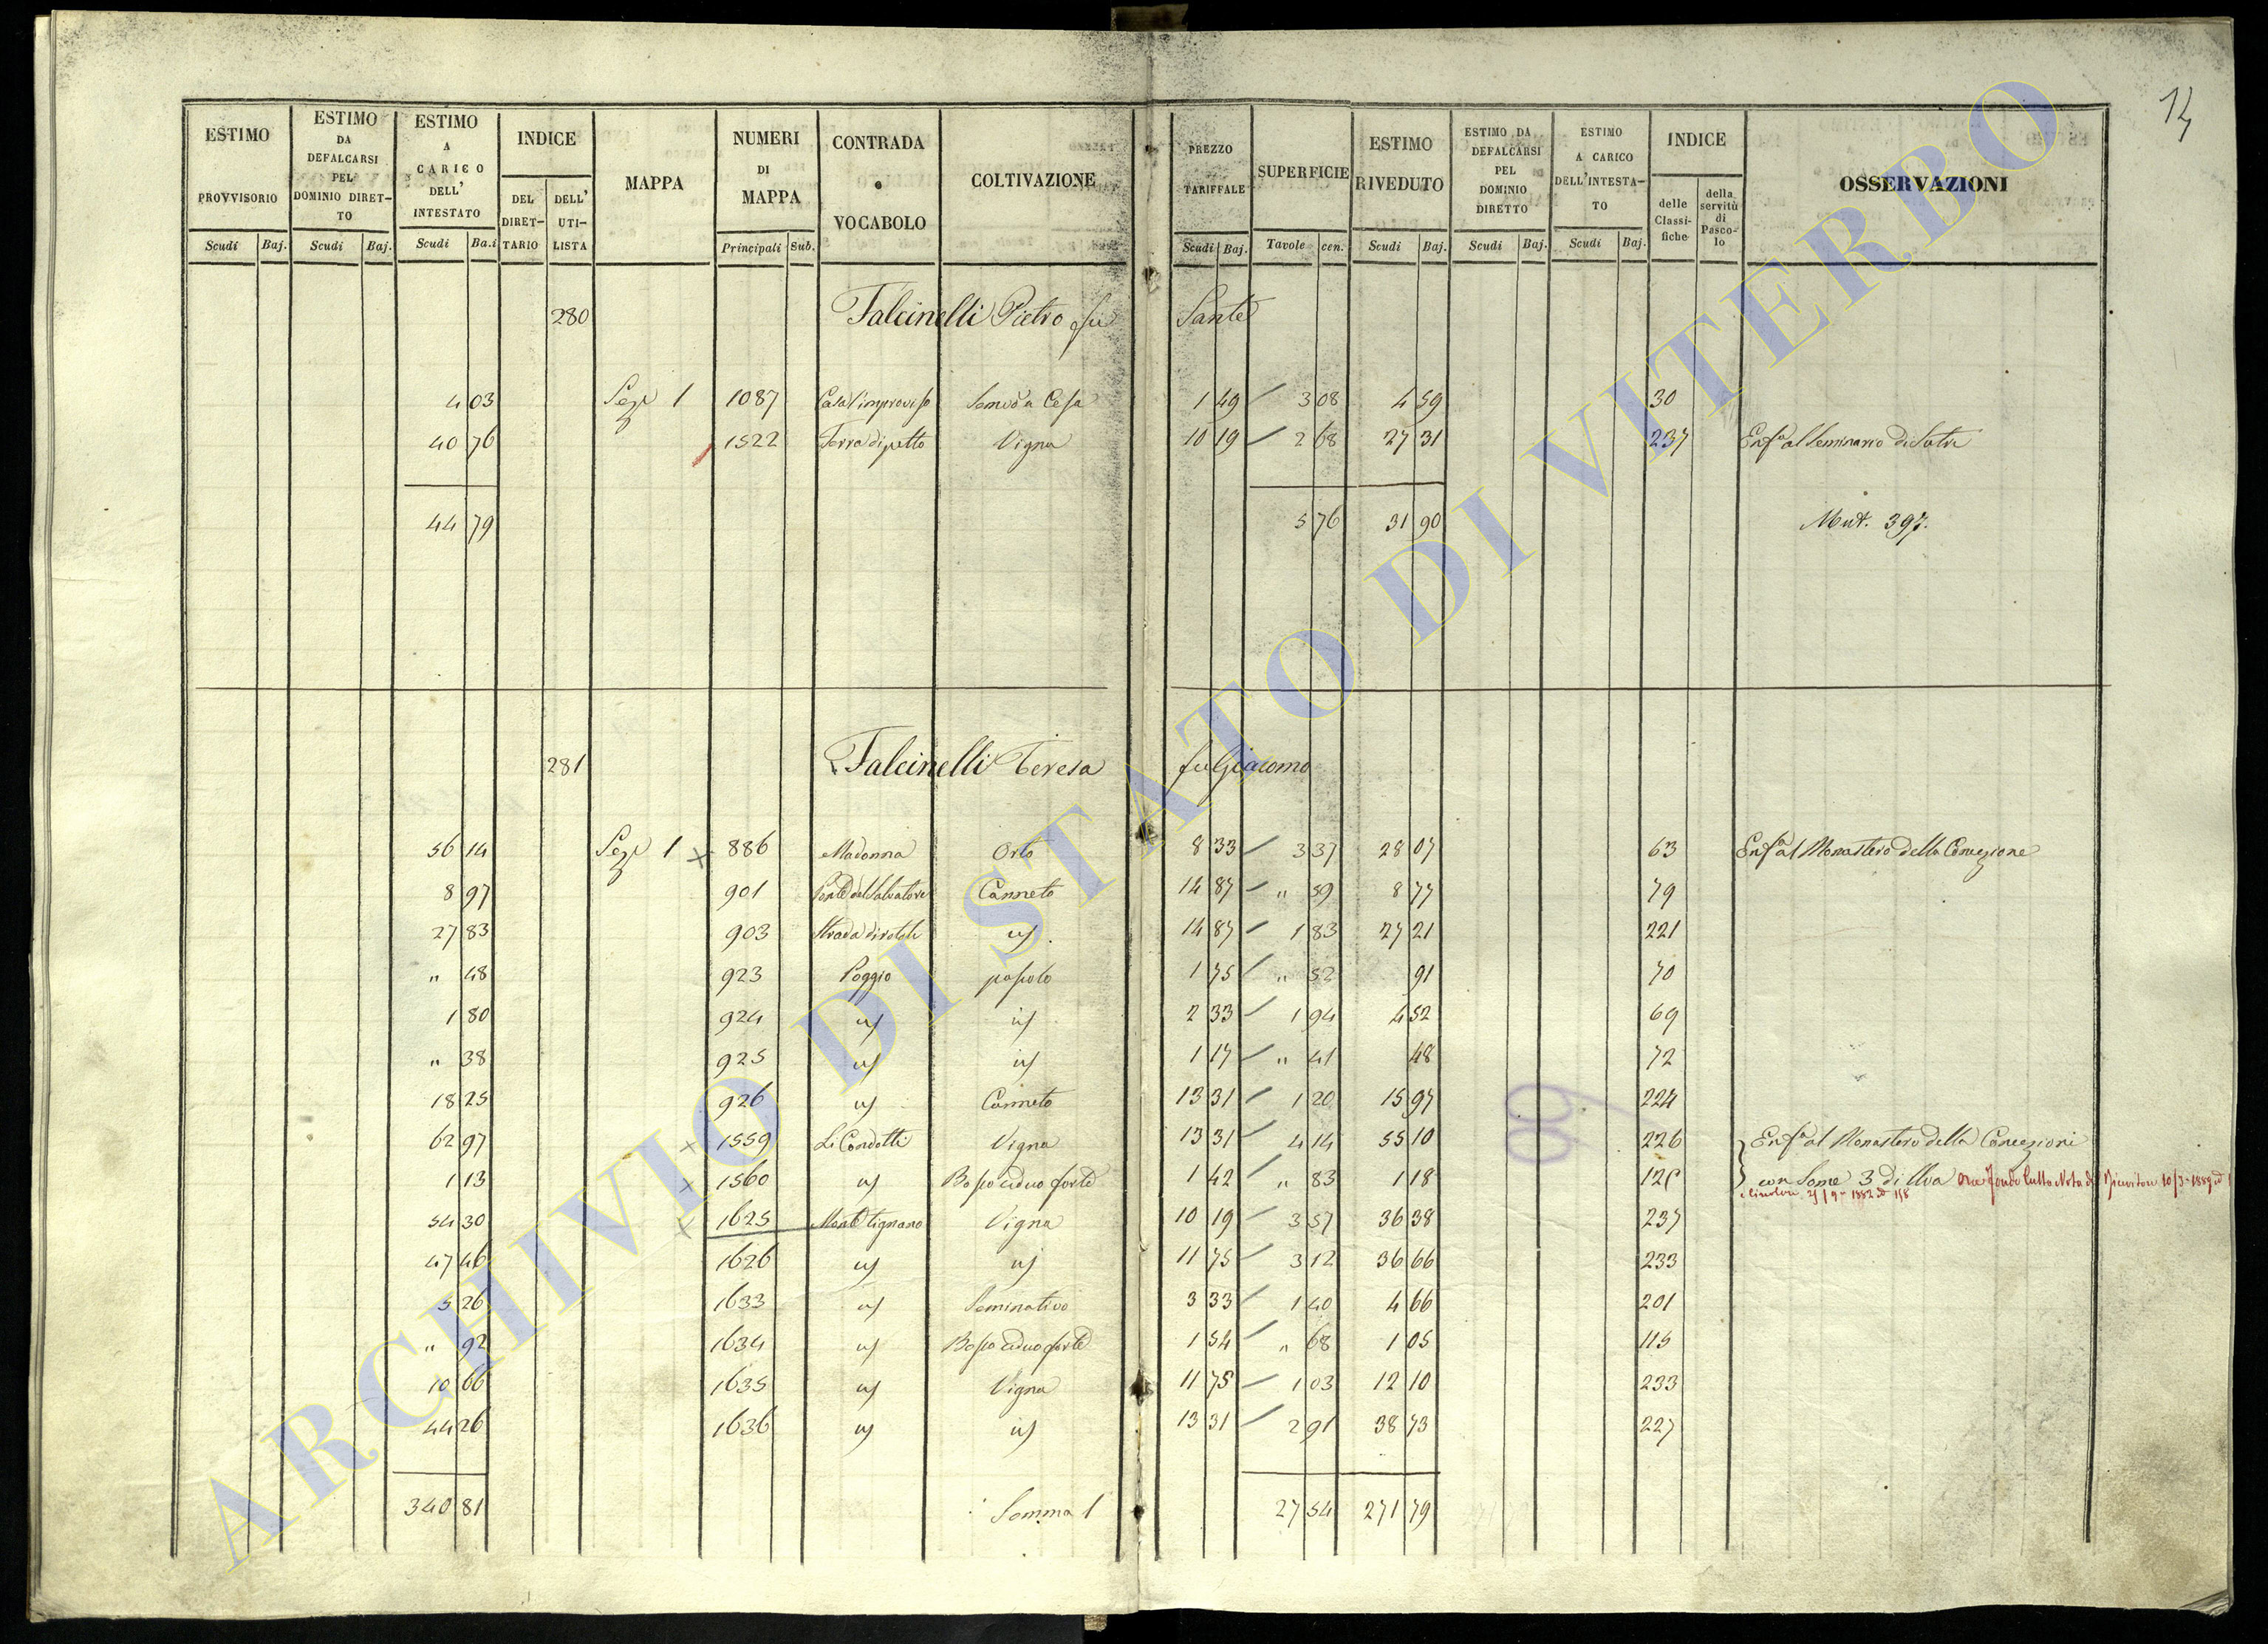 14
ESTIMO PROVVISORIO Scudi Baj.
ESTIMO DA DEFALCARSI PEL DOMINIO DIRETTO Scudi Baj.
ESTIMO A CARICO DELL' INTESTATO Scudi Ba.i
INDICE DEL DIRETTARIO DELL' UTILISTA
MAPPA
NUMERI DI MAPPA Principali Sub.
CONTRADA o VOCABOLO
COLTIVAZIONE
PREZZO TARIFFALE Scudi Baj.
SUPERFICIE Tavole cen.
ESTIMO RIVEDUTO Scudi Baj.
ESTIMO DA DEFALCARSI PEL DOMINIO DIRETTO Scudi Baj.
ESTIMO A CARICO DELL'INTESTATO Scudi Baj.
INDICE delle Classifiche della servitù di Pascolo
OSSERVAZIONI
280 Falcinelli Pietro fu Sante
4 03 Sez 1 1087 Casal'improviso Semivo a Cesa 1 49 3 08 4 59 30
40 76 1522 Terra di petto Vigna 10 19 2 68 27 31 237 Enfa al Seminario di Sutri
44 79 5 76 31 90 Mut. 397.
281 Falcinelli Teresa fu Giacomo
56 14 Sez 1 886 Madonna Orto 8 33 3 37 28 07 63 Enfa al Monastero della Concezione
8 97 901 Ponte del Salvatore Canneto 14 87 " 59 8 77 79
27 83 903 Strada di 14 87 1 83 27 21 221
" 48 923 Poggio pascolo 1 75 " 52 91 70
1 80 924 id id 2 33 1 94 4 52 69
" 38 925 id id 1 17 " 41 48 72
18 25 926 id Canneto 13 31 1 20 15 97 224
62 97 1559 Li Condotti Vigna 13 31 4 14 55 10 226 Enfa al Monastero della Concezione
1 13 1560 id Bosco ceduo forte 1 42 " 83 1 18 126 con Some 3 di Uva
54 30 1625 Monte Lignano Vigna 10 19 3 57 36 38 237
47 46 1626 id id 11 75 3 12 36 66 233
5 26 1633 id Seminativo 3 33 1 40 4 66 201
" 92 1634 id Bosco ceduo forte 1 54 " 68 1 05 115
10 66 1635 id Vigna 11 75 1 03 12 10 233
44 26 1636 id id 13 31 2 91 38 73 227
340 81 Somma 1 27 54 271 79
ARCHIVIO DI STATO DI VITERBO